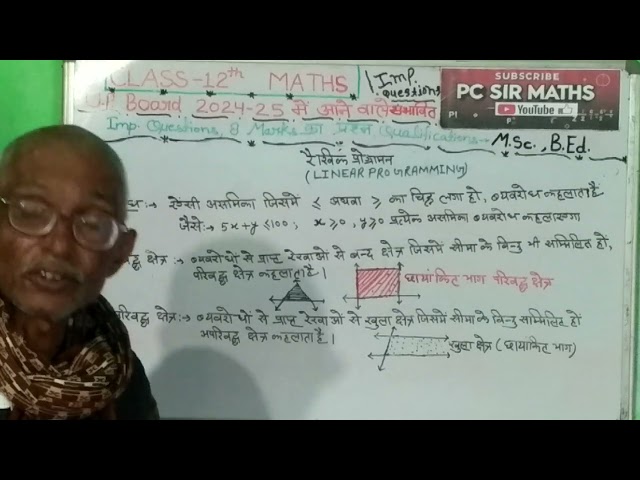 CLASS-12th MATHS
Imp. questions
U.P. Board 2024-25 में आने वाले संभावित
Imp. Questions, 8 Marks का प्रश्न, Qualifications- M.Sc., B.Ed.
SUBSCRIBE
PC SIR MATHS
YouTube
रैखिक प्रोग्रामन
(LINEAR PROGRAMMING)
:→ ऐसी असमिका जिसमें ≤ अथवा ≥ का चिह्न लगा हो, व्यवरोध कहलाता है
जैसे:- 5x+y ≤100, x≥0, y≥0 प्रत्येक असमिका व्यवरोध कहलाएगा
बद्ध क्षेत्र :→ व्यवरोधों से प्राप्त रेखाओं से बन्द क्षेत्र जिसमें सीमा के बिन्दु भी सम्मिलित हों,
परिबद्ध क्षेत्र कहलाता है।
छायांकित भाग परिबद्ध क्षेत्र
परिबद्ध क्षेत्र:→ व्यवरोधों से प्राप्त रेखाओं से खुला क्षेत्र जिसमें सीमा के बिन्दु सम्मिलित हों
अपरिबद्ध क्षेत्र कहलाता है।
खुला क्षेत्र (छायांकित भाग)